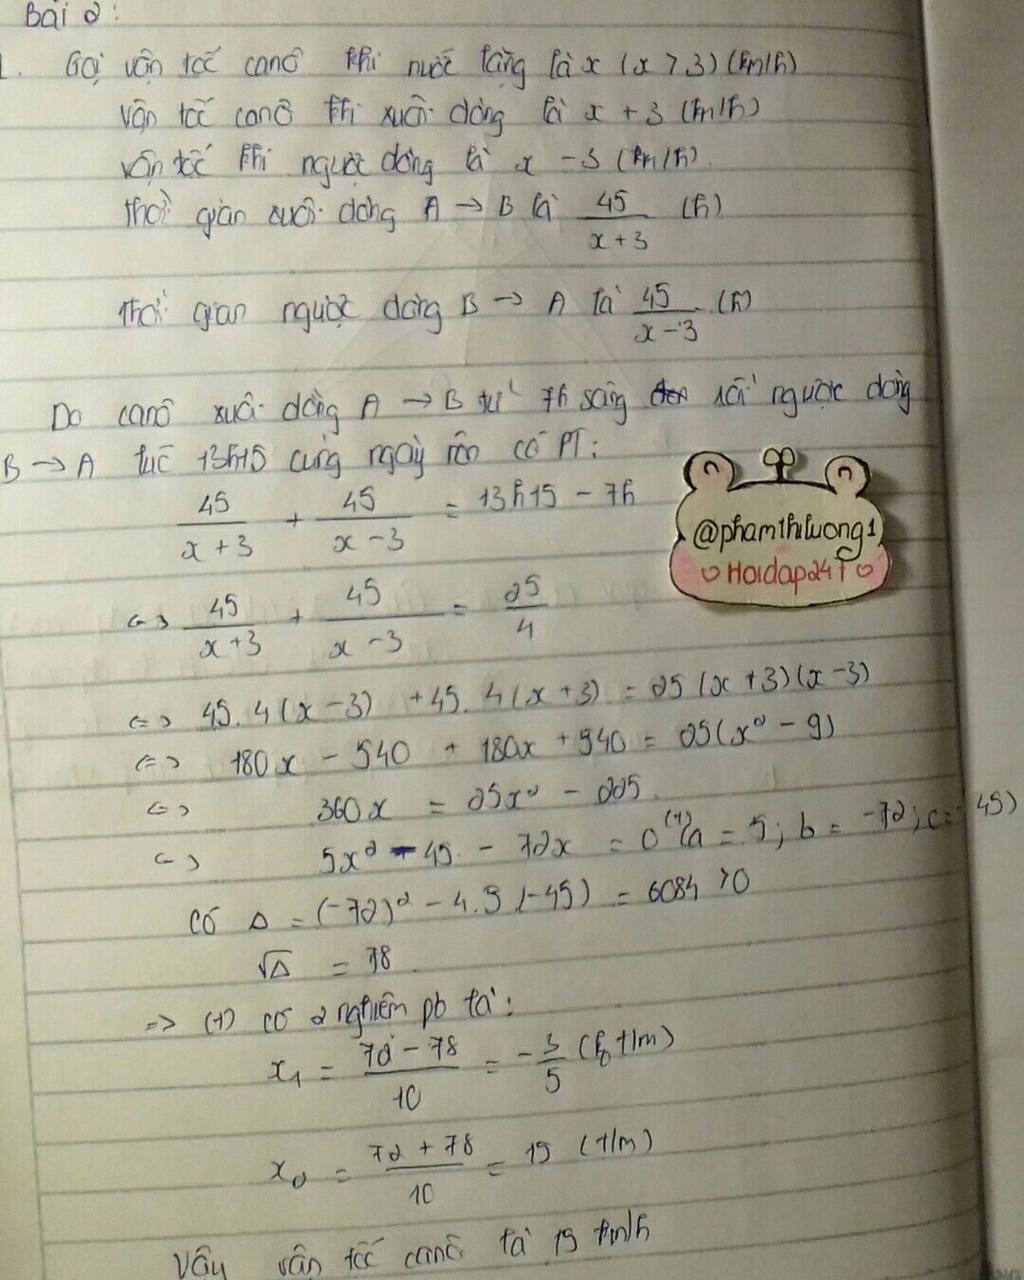 Bài 2:
1. Gọi vận tốc canô khi nước lặng là x (x > 3) (km/h)
vận tốc canô khi xuôi dòng là x + 3 (km/h)
vận tốc khi ngược dòng là x - 3 (km/h).
thời gian xuôi dòng A → B là 45/(x + 3) (h)
thời gian ngược dòng B → A là 45/(x - 3) (h)
Do canô xuôi dòng A → B từ 7h sáng rồi ngược dòng
B → A lúc 13h15 cùng ngày nên có PT:
45/(x + 3) + 45/(x - 3) = 13h15 - 7h
@phamthiluong1
Hoidap247
<=> 45/(x + 3) + 45/(x - 3) = 25/4
<=> 45.4(x - 3) + 45.4(x + 3) = 25(x + 3)(x - 3)
<=> 180x - 540 + 180x + 540 = 25(x² - 9)
<=> 360x = 25x² - 225
<=> 5x² - 45 - 72x = 0 (1) (a = 5; b = -72; c = -45)
Có Δ = (-72)² - 4.5(-45) = 6084 > 0
√Δ = 78
=> (1) có 2 nghiệm pb là:
x₁ = (72 - 78)/10 = -3/5 (ko t/m)
x₂ = (72 + 78)/10 = 15 (t/m)
Vậy vận tốc canô là 15 km/h